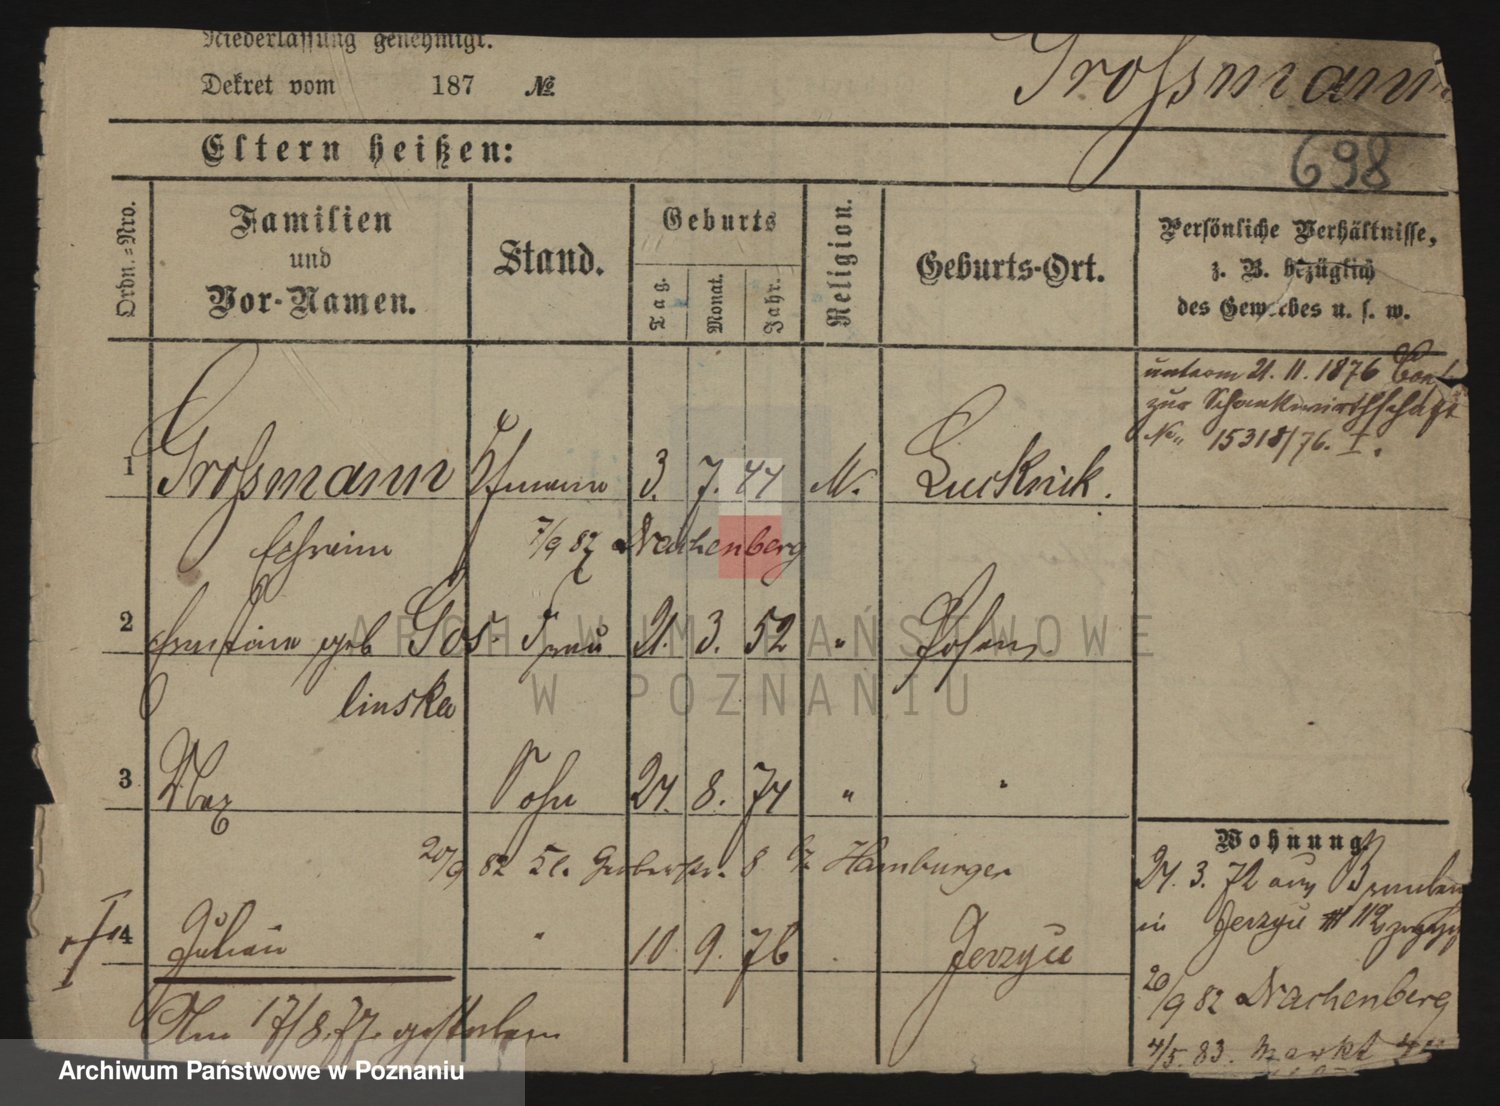 Niederlassung genehmigt.
Dekret vom 187 №
Grossmann
Eltern heißen:
698
Ordn.-Nro.
Familien
und
Vor-Namen.
Stand.
Geburts
Tag.
Monat.
Jahr.
Religion.
Geburts-Ort.
Persönliche Verhältnisse,
z. B. bezüglich
des Gewerbes u. s. w.
unterm 21. 11. 1876
zur Schankwirthschaft
No 15318/76. I.
1 Grossmann 3. 7. 44
Ephraim 7/9 82 Wachenberg
2 geb Gos- Frau 21. 3. 52 " Posen
linska
3 Max Sohn 24. 8. 74 " "
20/9 82 Kl. Gerberstr. 8 bz Hamburger
Wohnung
24. 3. 72 aus
in Jerzyce 112
4 Julian " 10 9. 76 . Jerzyce
Am 17/8. 77. gestorben
20/9 82 Wachenberg
4/5. 83. Markt
ARCHIWUM PAŃSTWOWE
W POZNANIU
Archiwum Państwowe w Poznaniu